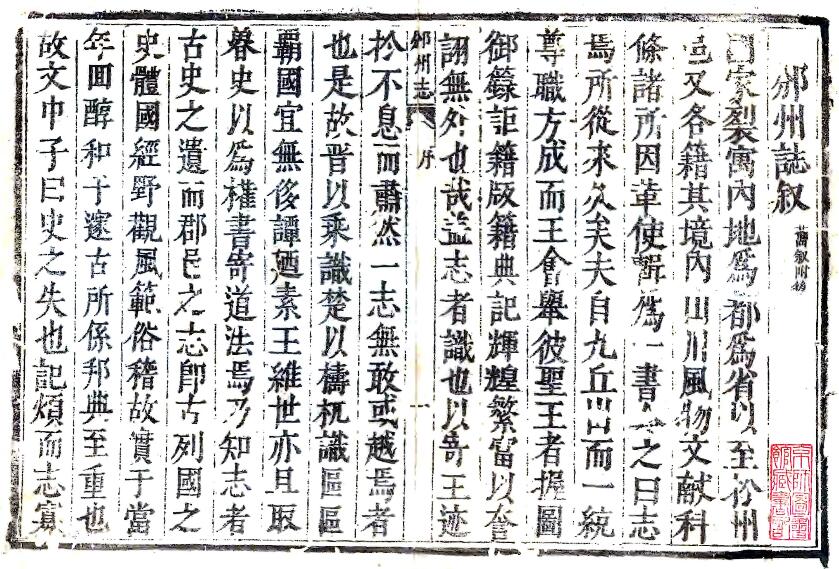 邠州誌叙 舊叙附錄
國家裂寓內地爲都爲省以至於州
邑又各籍其境內山川風物文獻科
條諸所因革使輯爲一書 之曰志
焉所從來久矣夫自九丘出而一統
尊職方成而王會舉彼聖王者握圖
御籙詎籍版籍典記輝煌繁富以奢
詡無外也哉益志者識也以寄王迹
邠州志 序 一
於不息而肅然一志無敢或越焉者
也是故晋以乘識楚以檮杌識區區
覇國宜無後譚廼素王維世亦且取
春史以爲權書寄道法焉乃知志者
古史之遺而郡邑之志卽古列國之
史體國經野觀風範俗稽故實于當
年回醇和于邃古所係邦典至重也
故文中子曰史之失也記煩而志寡